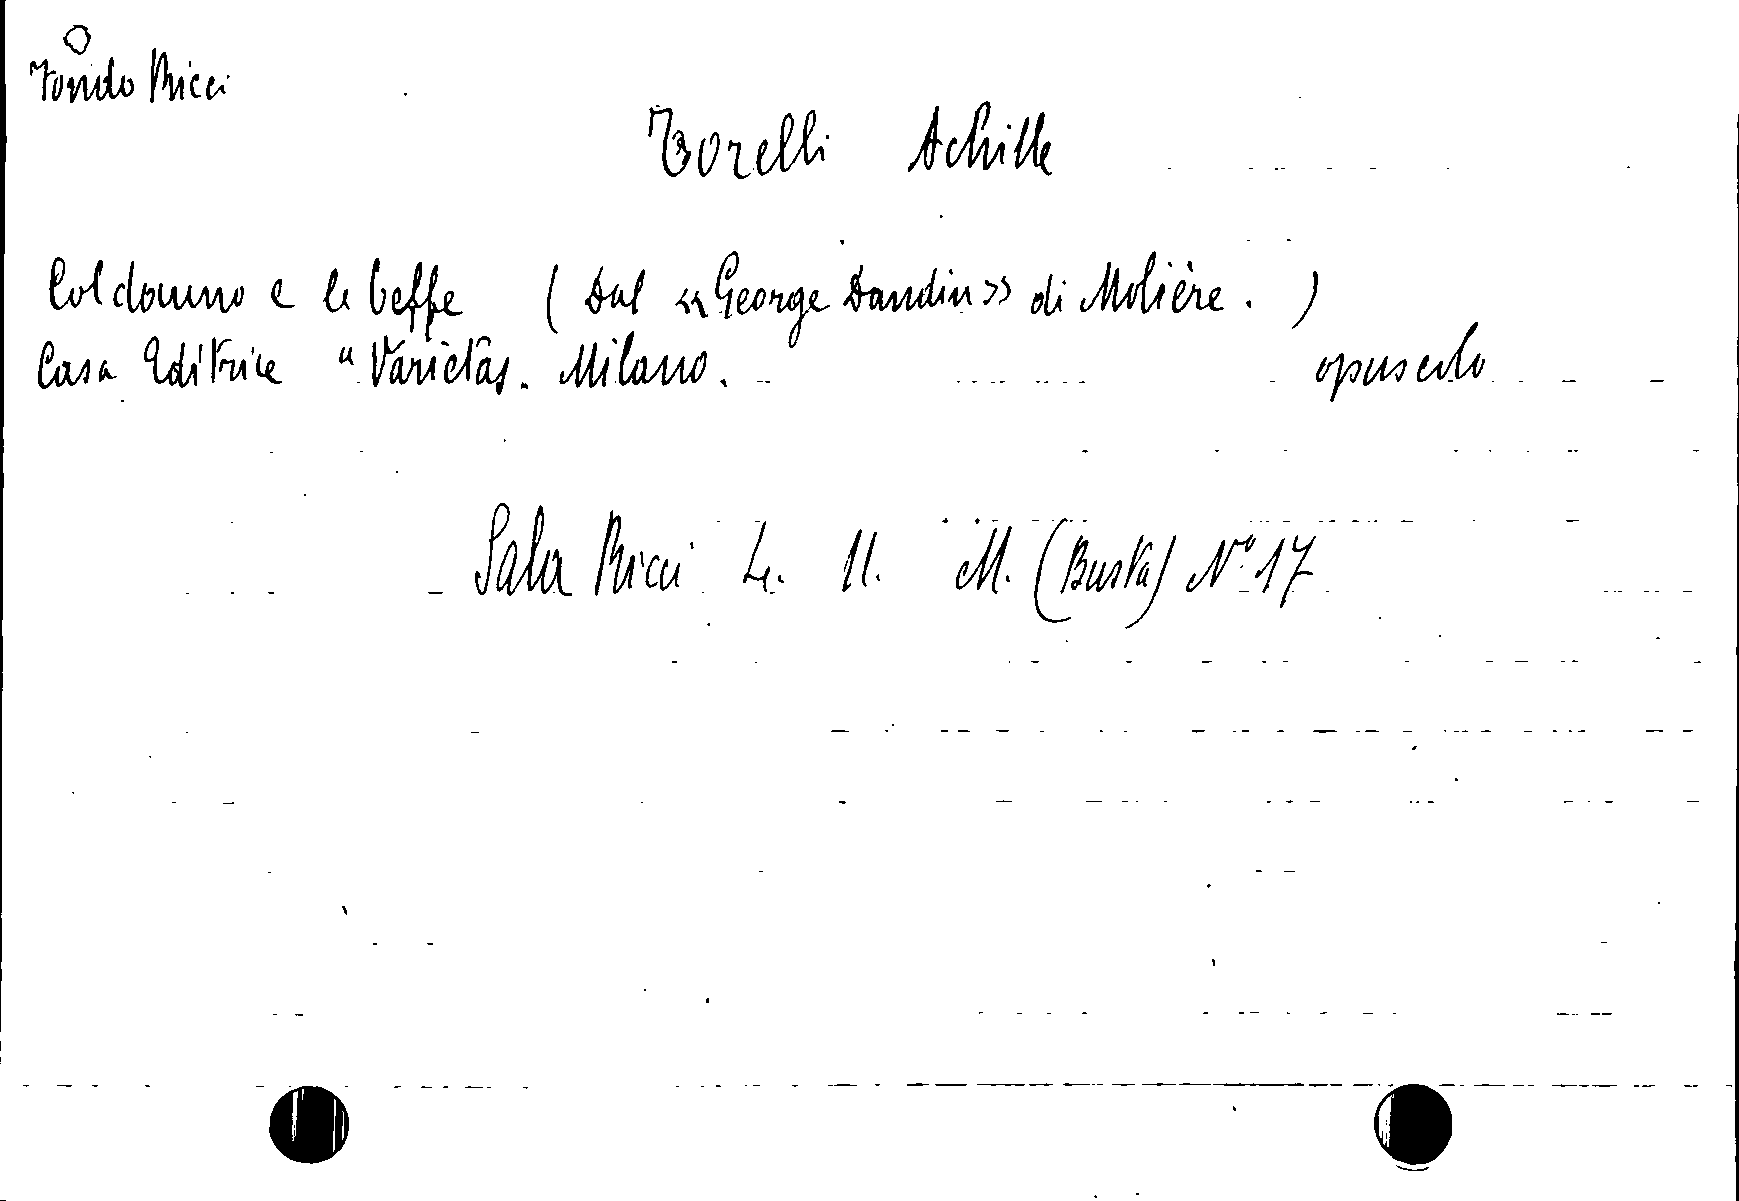 Fondo Ricci
Torelli Achille
Col danno e le beffe ( Dal «George Dandin» di Molière. )
Casa Editrice "Varietas. Milano. opuscolo
Sala Ricci L. 11. M. (Busta) N° 17